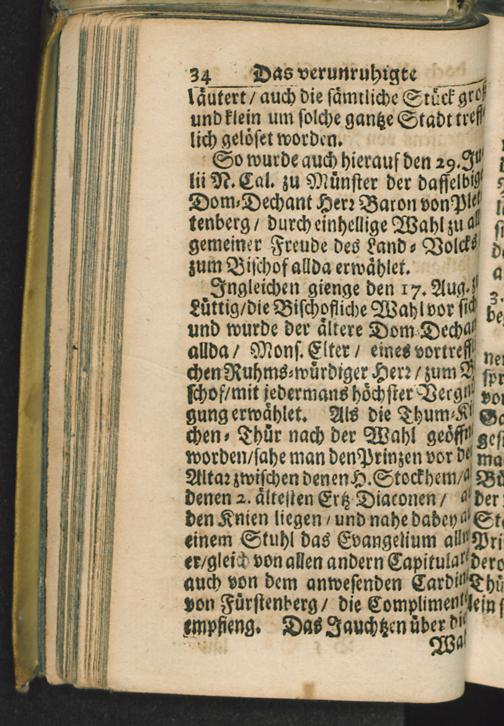 34 Das verunruhigte
läutert / auch die sämtliche Stück groß
und klein um solche gantze Stadt treff
lich gelöset worden.
So wurde auch hierauf den 29. Ju
lii N. Cal. zu Münster der dasselbige
Dom-Dechant Herr Baron von Plet
tenberg / durch einhellige Wahl zu all
gemeiner Freude des Land-Volcks
zum Bischof allda erwählet.
Ingleichen gienge den 17. Aug. z
Lüttig / die Bischofliche Wahl vor sich
und wurde der ältere Dom Dechan
allda / Mons. Elter / eines vortreff
chen Ruhms-würdiger Herr / zum B
schof / mit jedermans höchster Vergn
gung erwählet. Als die Thum-Ki
chen-Thür nach der Wahl geöffn
worden / sahe man den Prinzen vor de
Altar zwischen denen H. Stockhem / a
denen 2. ältesten Ertz Diaconen / a
den Knien liegen / und nahe dabey a
einem Stuhl das Evangelium all
er / gleich von allen andern Capitular
auch von dem anwesenden Cardin
von Fürstenberg / die Compliment
empfieng. Das Jauchtzen über die
Wal